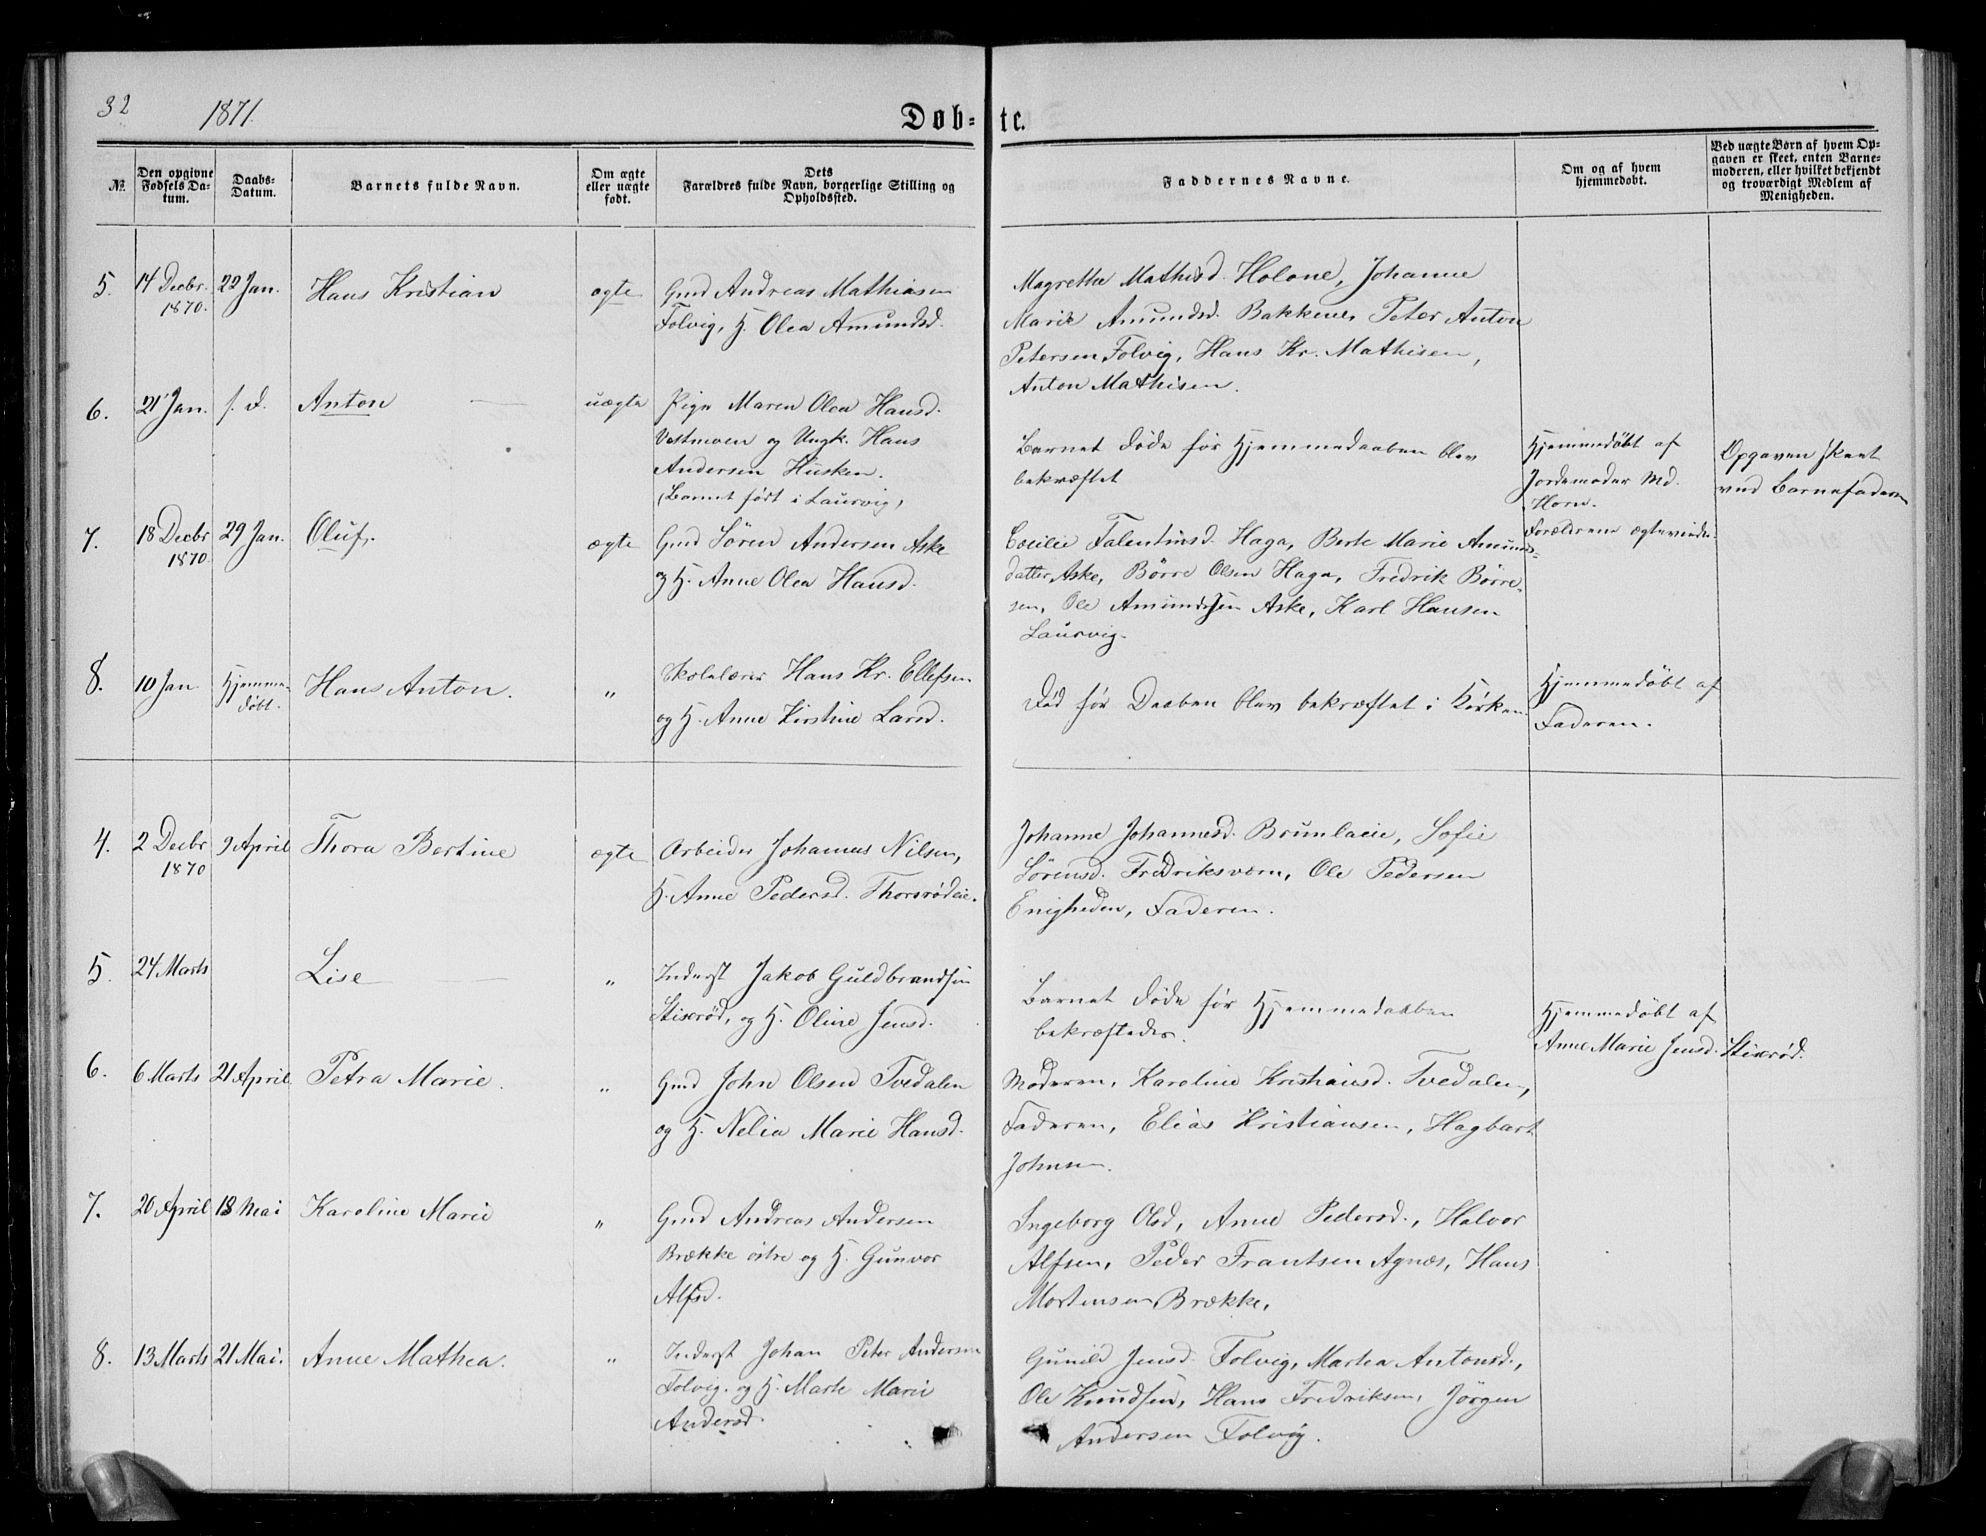 32
1871.
Døb-
te.
№
Den opgivne
Fødsels Da-
tum.
Daabs-
Datum.
Barnets fulde Navn.
Om ægte
eller uægte
født.
Dets
Forældres fulde Navn, borgerlige Stilling og
Opholdssted.
Faddernes Navne.
Om og af hvem
hjemmedøbt.
Ved uægte Børn af hvem Op-
gaven er skeet, enten Barne-
moderen, eller hvilket bekjendt
og troværdigt Medlem af
Menigheden.
5.
14 Decbr.
1870.
22 Jan.
Hans Kristian
ægte
Gmd Andreas Mathiasen
Folvig, H. Olea Amundsd.
Magrethe Mathisd. Holone, Johanne
Marie Amundsd. Bakkene, Peter Anton
Petersen Folvig, Hans Kr. Mathisen,
Anton Mathisen.
6.
21 Jan.
s. d.
Anton
uægte
Pige Maren Olea Hansd.
Vestmoen og Ungk. Hans
Andersen Husken.
(Barnet født i Laurvig)
Barnet døde før Hjemmedaaben blev
bekræftet
Hjemmedøbt af
Jordemoder Md.
Horn.
Opgaven skeet
ved Barnefaderen
7.
18 Decbr
1870
29 Jan.
Oluf.
ægte
Gmd Sören Andersen Aske
og H. Anne Olea Hansd.
Cecilie Falentinsd. Haga, Berte Marie Amunds-
datter Aske, Börre Olsen Haga, Fredrik Börre-
sen, Ole Amundsen Aske, Karl Hansen
Laurvig.
Forældrene ægtevviede.
8.
10 Jan.
Hjemme-
døbt.
Hans Anton.
"
Skolelærer Hans Kr. Ellefsen
og H. Anne Kirstine Larsd.
Död før Daaben blev bekræftet i Kirken
Hjemmedøbt af
Faderen.
4.
2 Decbr
1870
9 April
Thora Bertine
ægte
Arbeider Johannes Nilsen,
H. Anne Pedersd. Thorsrødeie.
Johanne Johannesd. Brunlaeie, Sofie
Sörensd. Fredriksværn, Ole Pedersen
Enigheden, Faderen.
5
24 Marts
Lise
"
Inderst Jakob Guldbrandsen
Stixrød, og H. Oline Jensd.
Barnet døde før Hjemmedaaben
bekræftedes.
Hjemmedøbt af
Anne Marie Jensd. Stixrød.
6.
6 Marts
21 April
Petra Marie.
"
Gmd John Olsen Tvedalen
og H. Nelia Marie Hansd.
Moderen, Karoline Kristiansd. Tvedalen,
Faderen, Elias Kristiansen, Hagbart
Johnsen.
7.
20 April
18 Mai
Karoline Marie
"
Gmd Andreas Andersen
Brække östre og H. Gunvor
Alfsd.
Ingeborg Olsd, Anne Pedersd., Halvor
Alfsen, Peder Frantsen Agnæs, Hans
Mortensen Brække.
8.
13 Marts
21 Mai.
Anne Mathea.
"
Inderst Johan Peter Andersen
Folvig. og H. Marte Marie
Andersd.
Gunild Jensd. Folvig, Martea Antonsd.,
Ole Knudsen, Hans Fredriksen, Jörgen
Andersen Folvig.